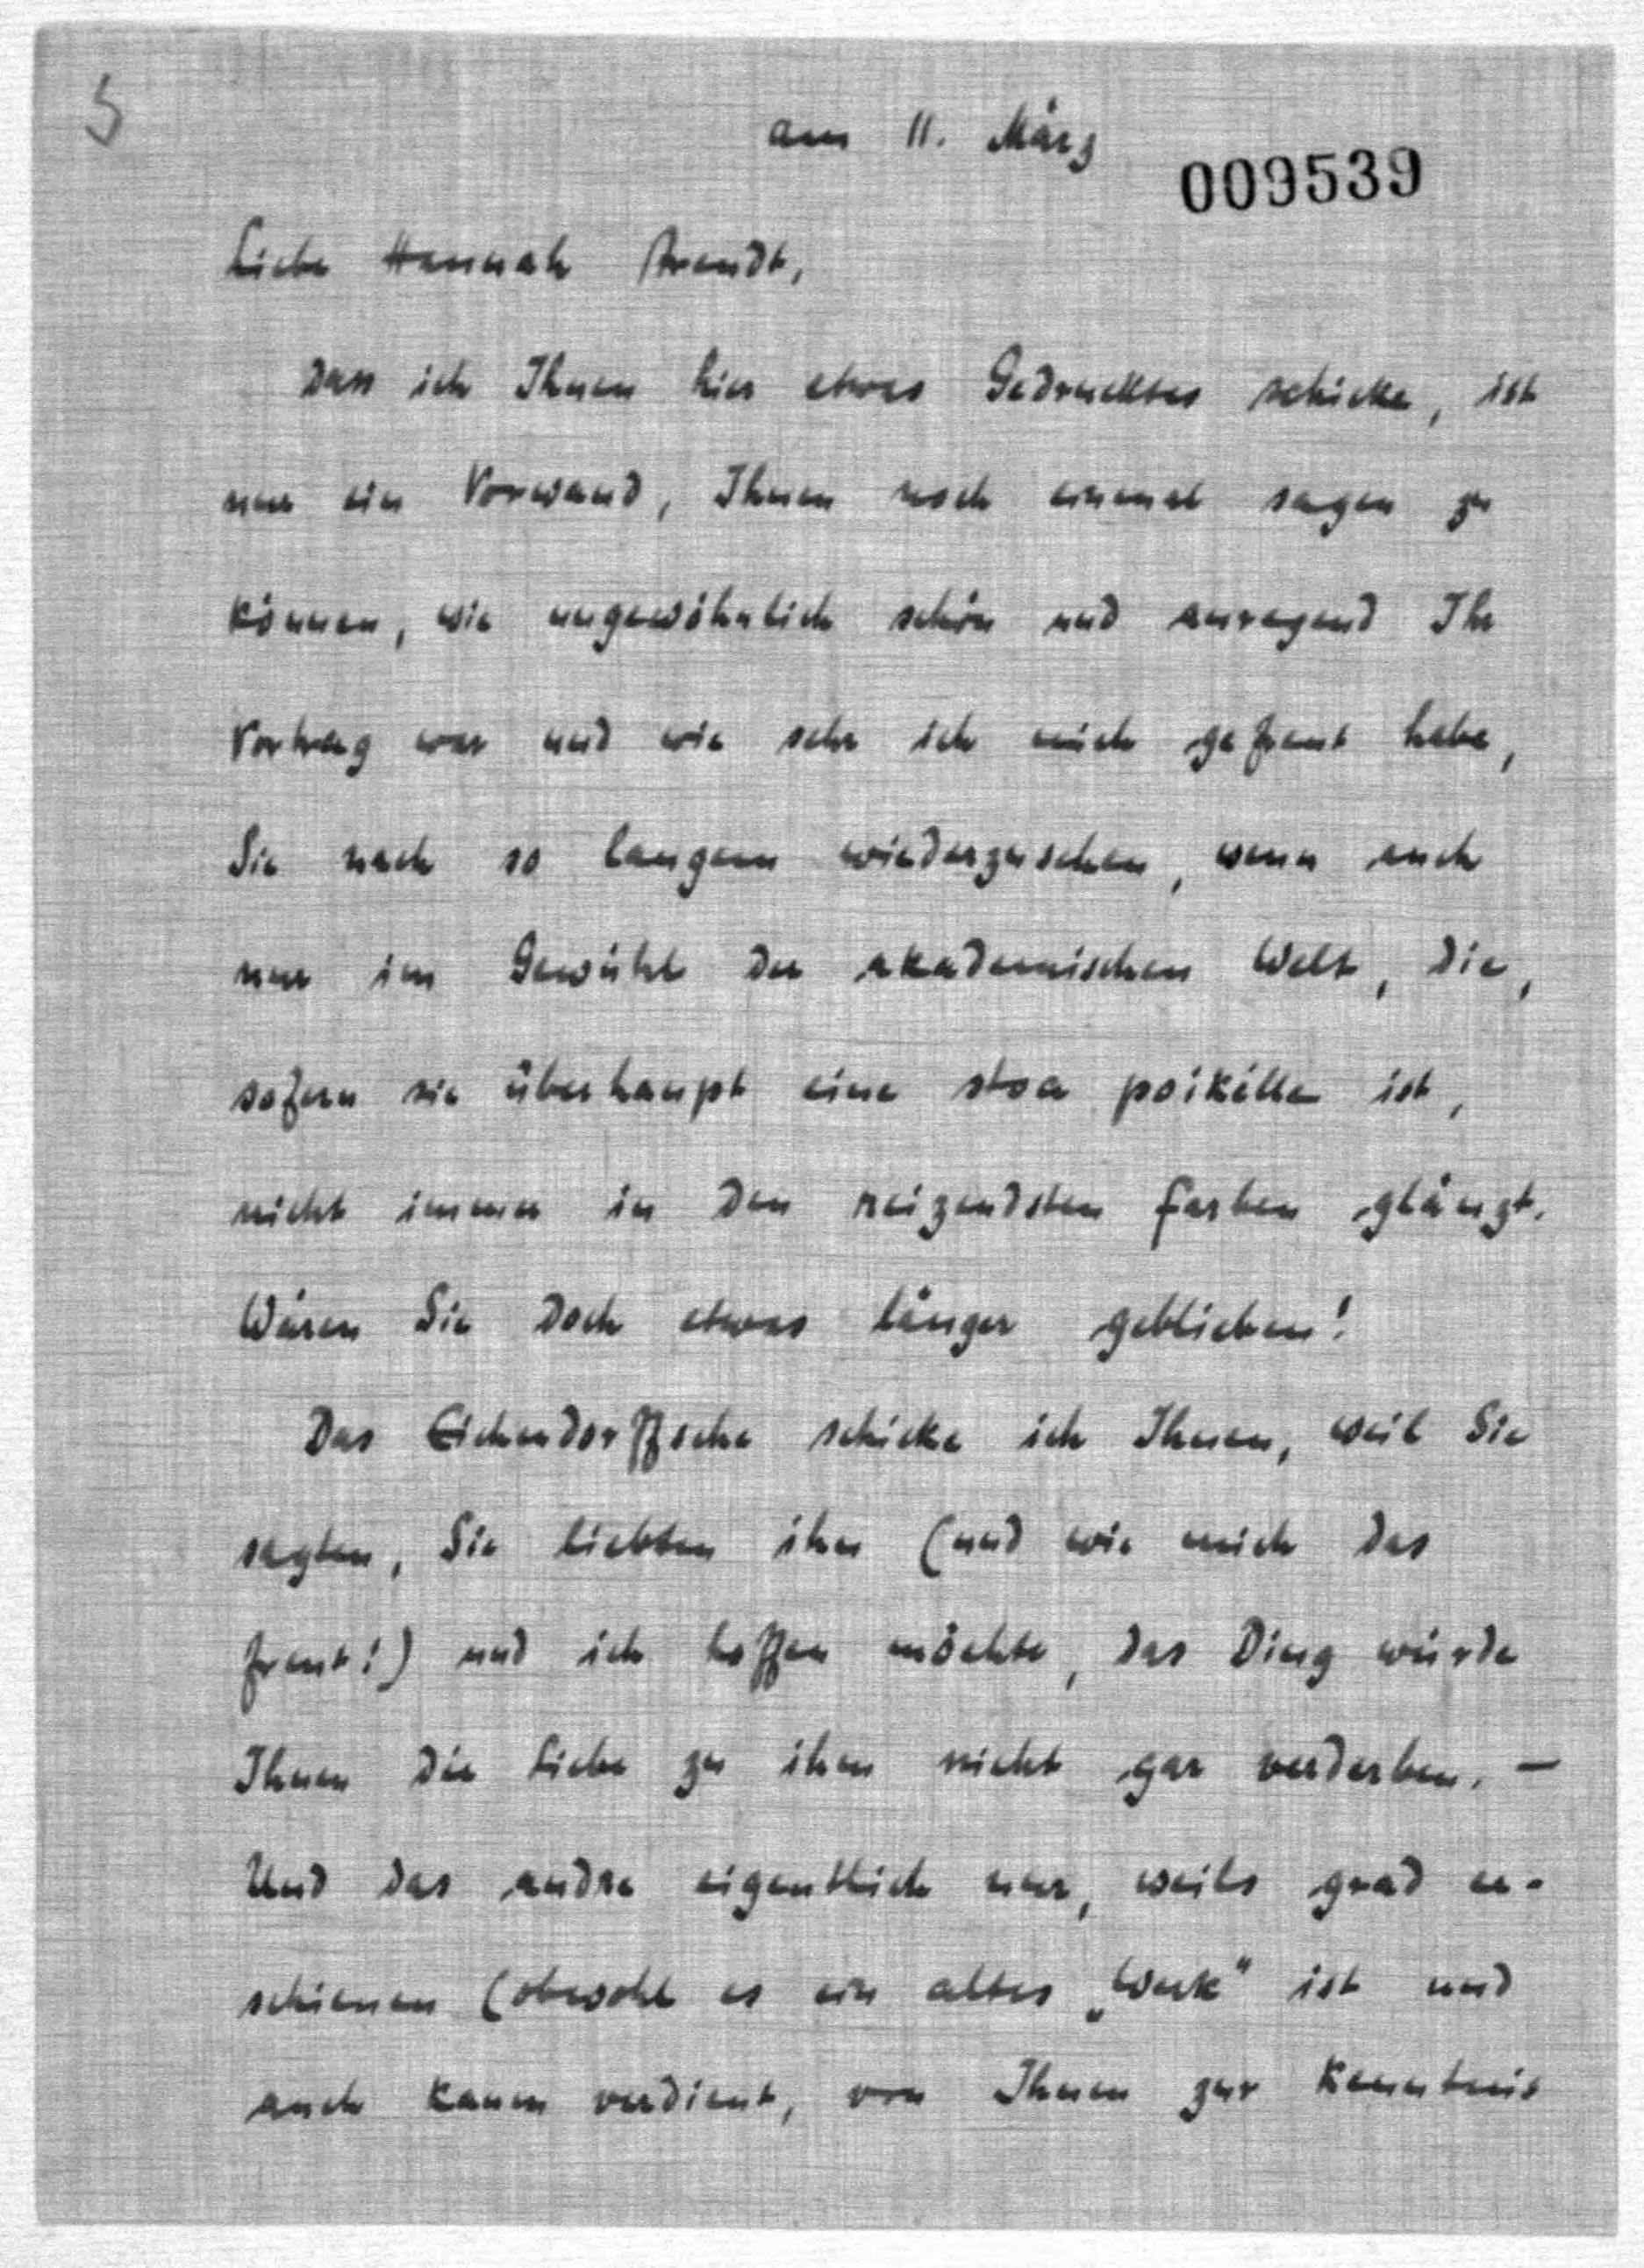 5
am 11. März
009539
Liebe Hannah Arendt,
Dass ich Ihnen hier etwas Gedrucktes schicke, ist
nur ein Vorwand, Ihnen noch einmal sagen zu
können, wie ungewöhnlich schön und anregend Ihr
Vortrag war und wie sehr ich mich gefreut habe,
Sie nach so langem wiederzusehen, wenn auch
nur im Gewühl der akademischen Welt, die,
sofern sie überhaupt eine stoa poikile ist,
nicht immer in den reizendsten Farben glänzt.
Wären Sie doch etwas länger geblieben!
Das Eichendorffsche schicke ich Ihnen, weil Sie
sagten, Sie liebten ihn (und wie mich das
freut!) und ich hoffen möchte, das Ding würde
Ihnen die Liebe zu ihm nicht gar verderben. –
Und das andre eigentlich nur, weils grad er-
schienen (obwohl es ein altes „Werk" ist und
auch kaum verdient, von Ihnen zur Kenntnis